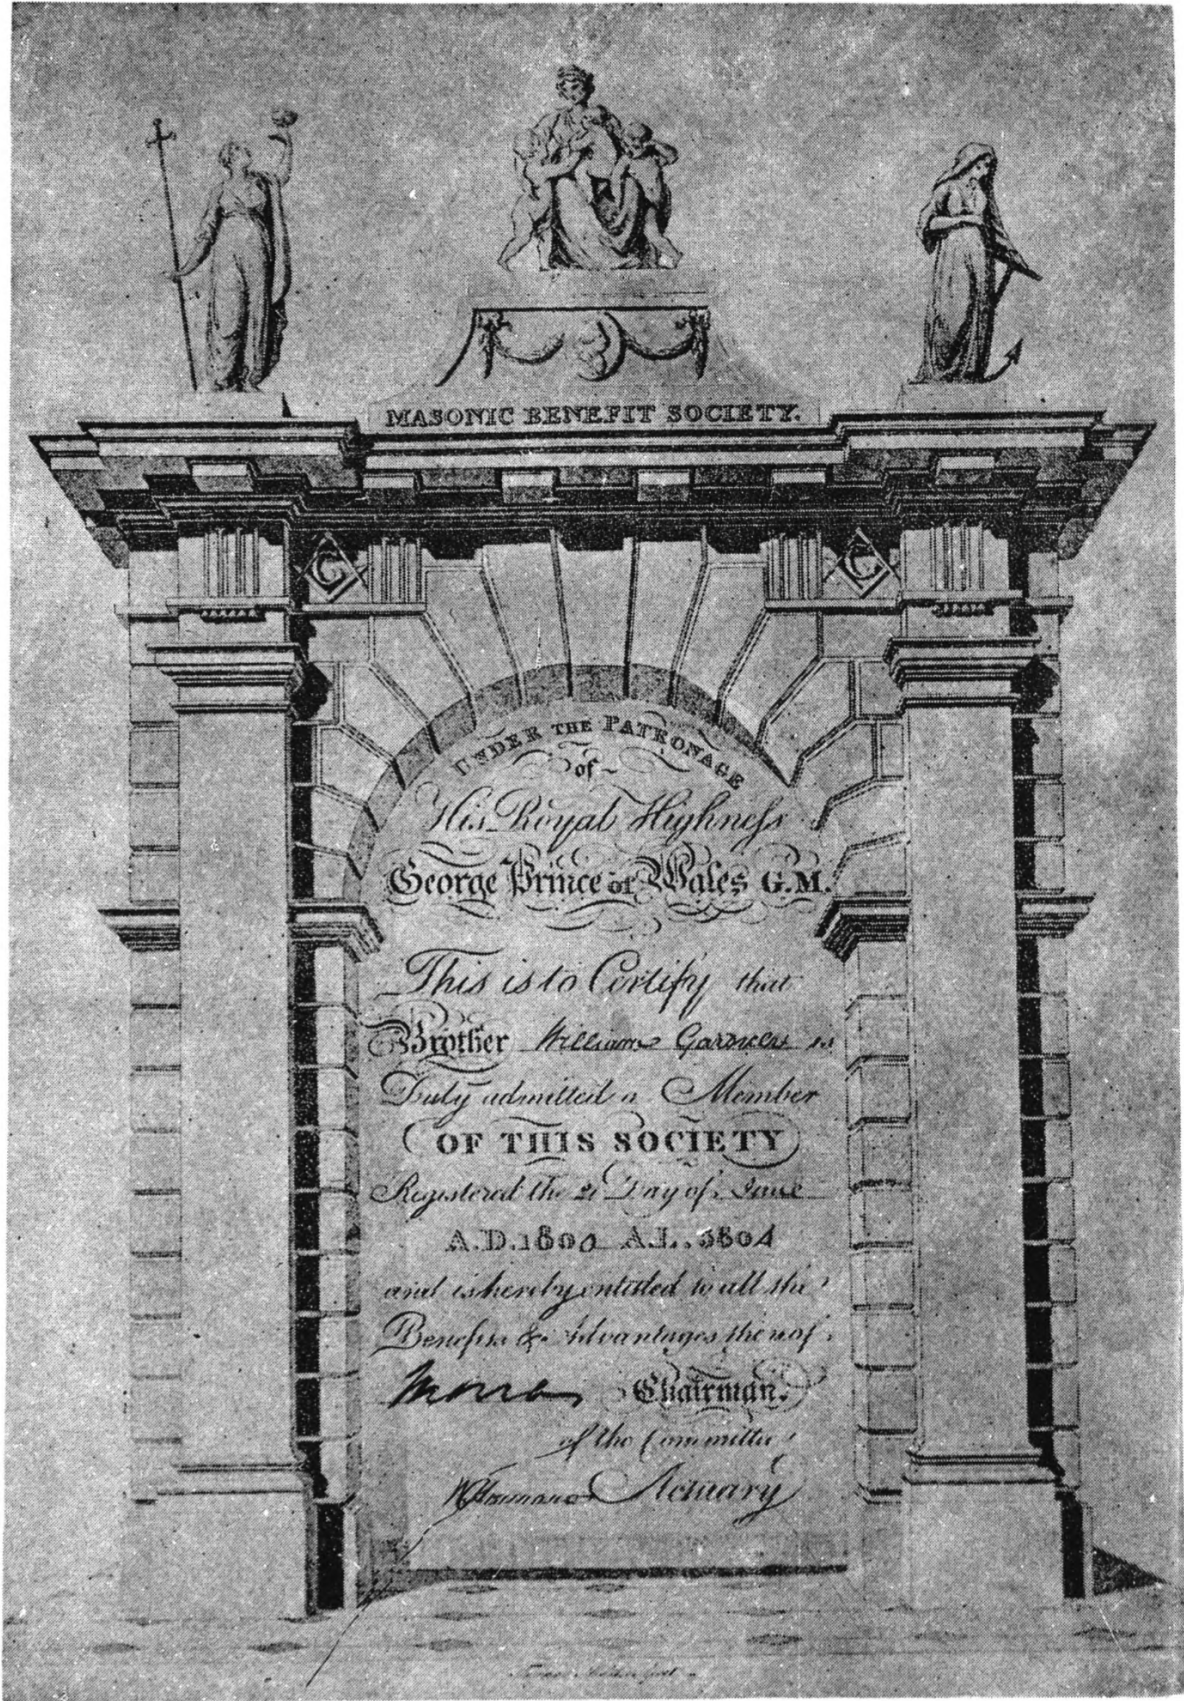 MASONIC BENEFIT SOCIETY.
G G
UNDER THE PATRONAGE
of
His Royal Highneſs
George Prince of Wales G.M.
This is to Certify that
Brother William Gardner is
Duly admitted a Member
OF THIS SOCIETY
Registered the 21 Day of June
A.D. 1800 A.L. 5804
and is hereby entitled to all the
Benefits & Advantages thereof.
Chairman.
of the Committee
Actuary